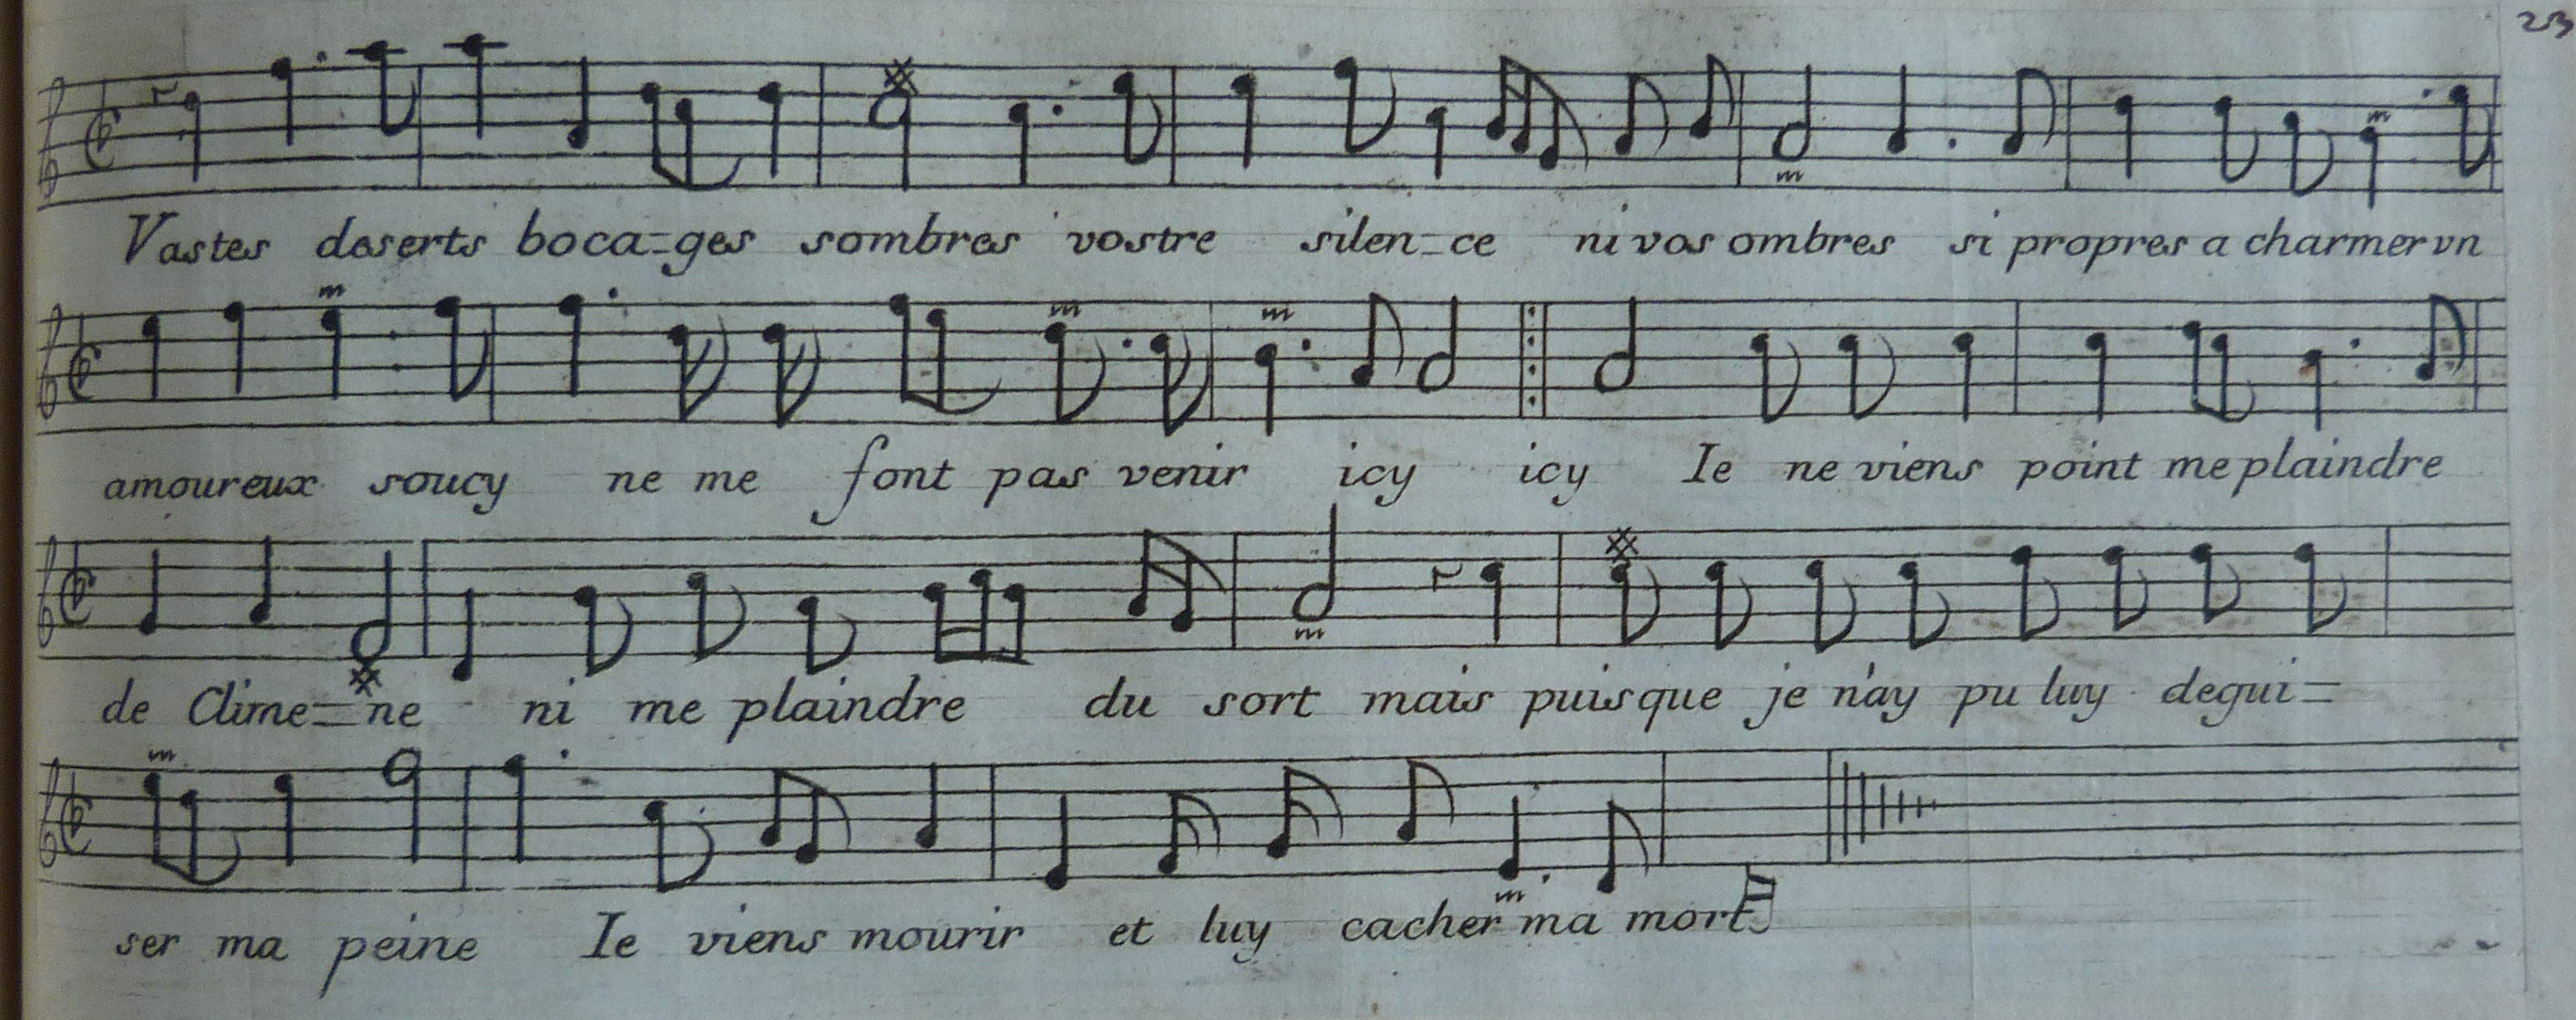 23
Vastes deserts boca=ges sombres vostre silen=ce ni vos ombres si propres a charmer vn
amoureux soucy ne me font pas venir icy icy Ie ne viens point me plaindre
de Clime=ne ni me plaindre du sort mais puisque je n'ay pu luy degui=
ser ma peine Ie viens mourir et luy cacher ma mort